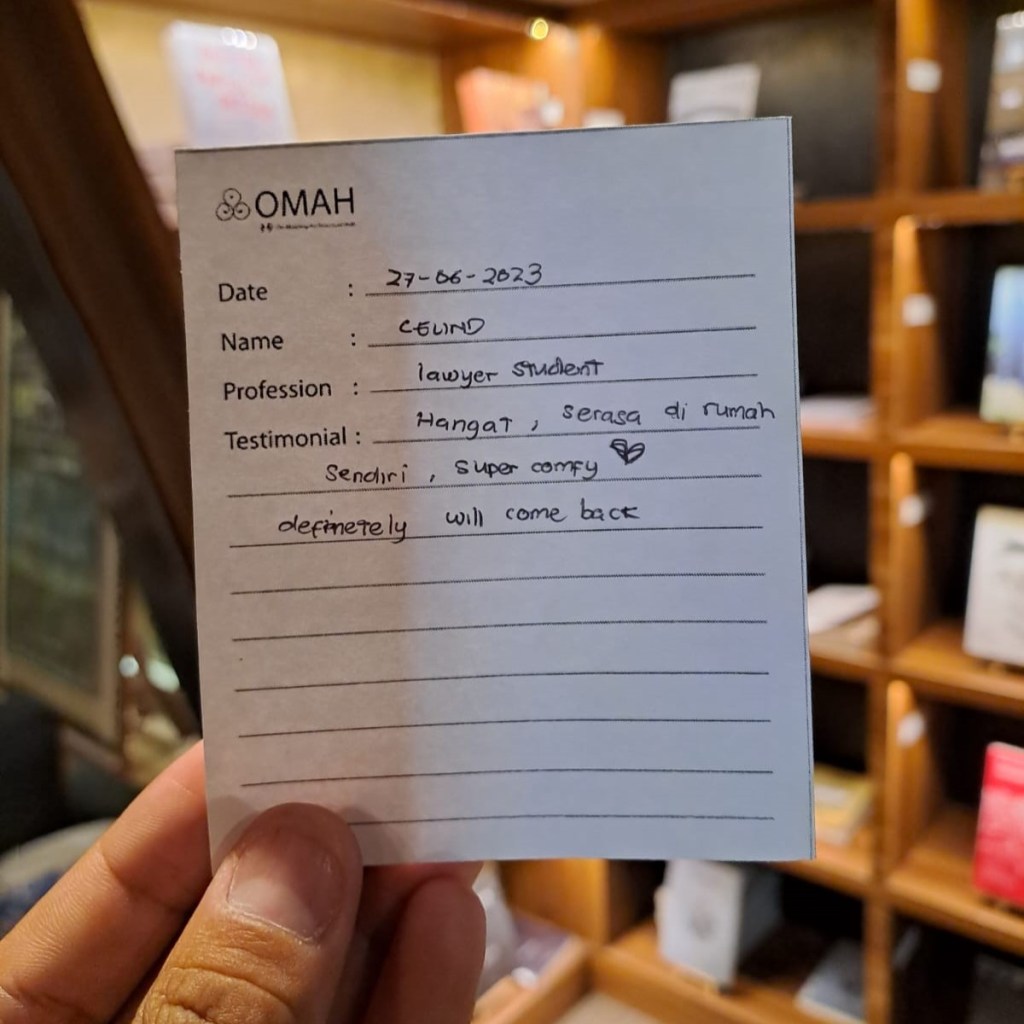 OMAH
Date : 27-06-2023
Name : CELIND
Profession : lawyer student
Testimonial : Hangat, serasa di rumah
sendiri, super comfy
definetely will come back